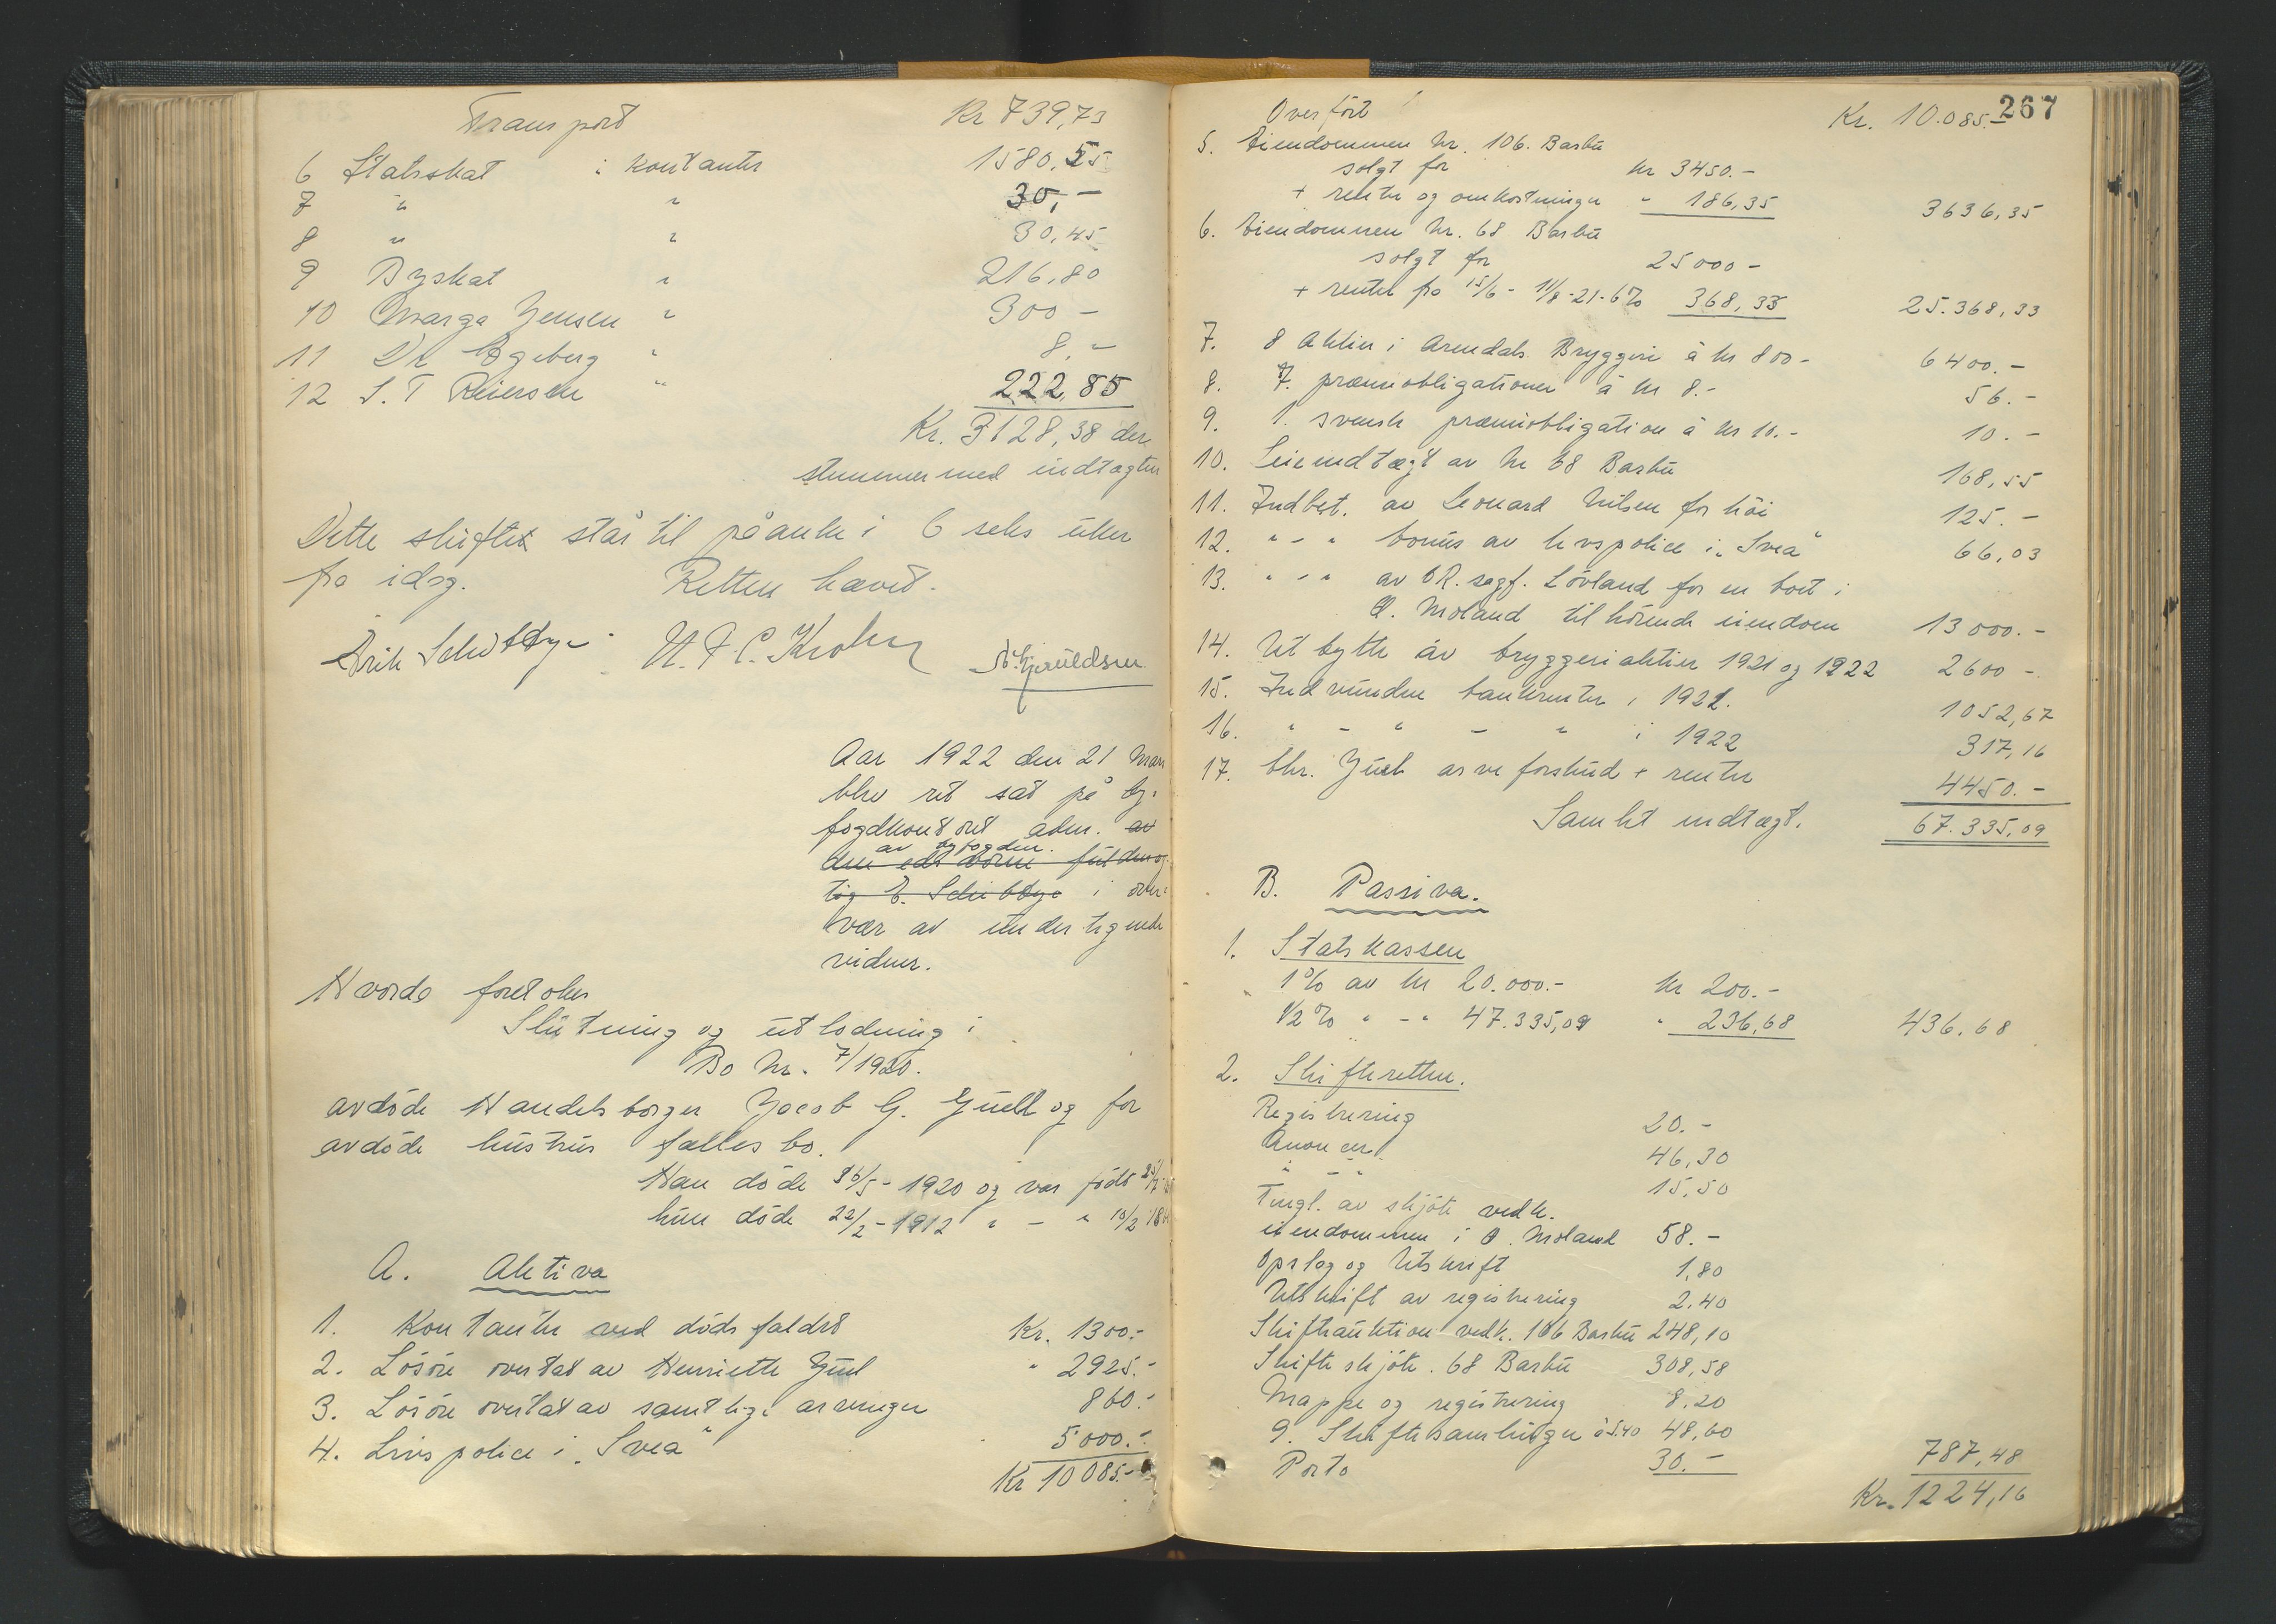 Transport Kr 739,73
6 Statsskat i kontanter 1580,55
7 " " 30,-
8 " " 30,45
9 Byskat " 216,80
10 Marga Jensen " 300 -
11 Dr Egeberg " 8,-
12 S. T Reiersen " 222,85
Kr. 3128,38 der
stemmer med indtægten
Dette skiftet står til påanke i 6 seks uker
fra idag. Retten hævet.
Erik Schübbye H. F. C. Krohn
Aar 1922 den 21 Mars
blev ret sat på by-
fogdkontoret adm. av
av byfogden.
den edsvorne fuldmæg-
tig E. Schübbye i over-
vær av undertegnede
vidner.
Hvorda foretokes
Slutning og utlodning i
Bo Nr. 7/1920.
avdöde Handelsborger Jacob G. Juell og for
avdöde hustrus fællesbo.
Han döde 26/5-1920 og var födt
hun döde 22/2-1912 " - "
A. Aktiva
1. Kontanter ved dödsfaldet Kr. 1300.-
2. Lösöre overtat av Henriette Juel " 2925.-
3. Lösöre overtat av samtlige arvinger 860.-
4. Livspolice i "Svea" 5000.-
Kr 10085.-
267
Overfört Kr. 10.085.-
5. Eiendommen Nr. 106. Barbu
solgt for kr 3450.-
+ renter og omkostninger " 186,35 3636,35
6. Eiendommen Nr. 68 Barbu
solgt for 25000 -
+ renter fra 15/6 - 11/9-21-6% 368,33 25.368,33
7. 8 Aktier i Arendals Bryggeri à kr 800- 6400.-
8. 7. præmieobligationer à kr 8.- 56.-
9. 1. svensk præmieobligation à kr 10.- 10.-
10. Leieindtægt av Nr 68 Barbu 168,55
11. Indbet. av Leonard Nilsen for höi 125.-
12. " - " bonus av livspolice i "Svea" 66,03
13. " - " av OR. sagf. Lövland for en bort i
Ö. Moland tilhörende eiendom 13000.-
14. Utbytte av bryggeriaktier 1921 og 1922 2600 -
15. Indvundne bankrenter i 1921. 1052,67
16. " - " - " i 1922 317,16
17. Chr. Juel arveforskud + renter 4450.-
Samlet indtægt. 67.335,09
B. Passiva.
1. Statskassen
1% av kr 20.000.- kr 200.-
1/2% " - " 47.335,09 " 236,68 436.68
2. Skifteretten.
Registrering 20.-
Anoncer 46,30
" - " 15,50
Tingl. av skjöte vedk.
eiendommen i Ö. Moland 58.-
Oprlag og Utskrift 1,80
Utskrift av registrering 2.40
Skifteauktion vedk. 106 Barbu 248,10
Skifteskjöte. 68 Barbu 308,58
Mappe og registrering 8.20
9. Skiftesamlinger à 5.40 48,60
Porto 30.- 787,48
Kr. 1224,16